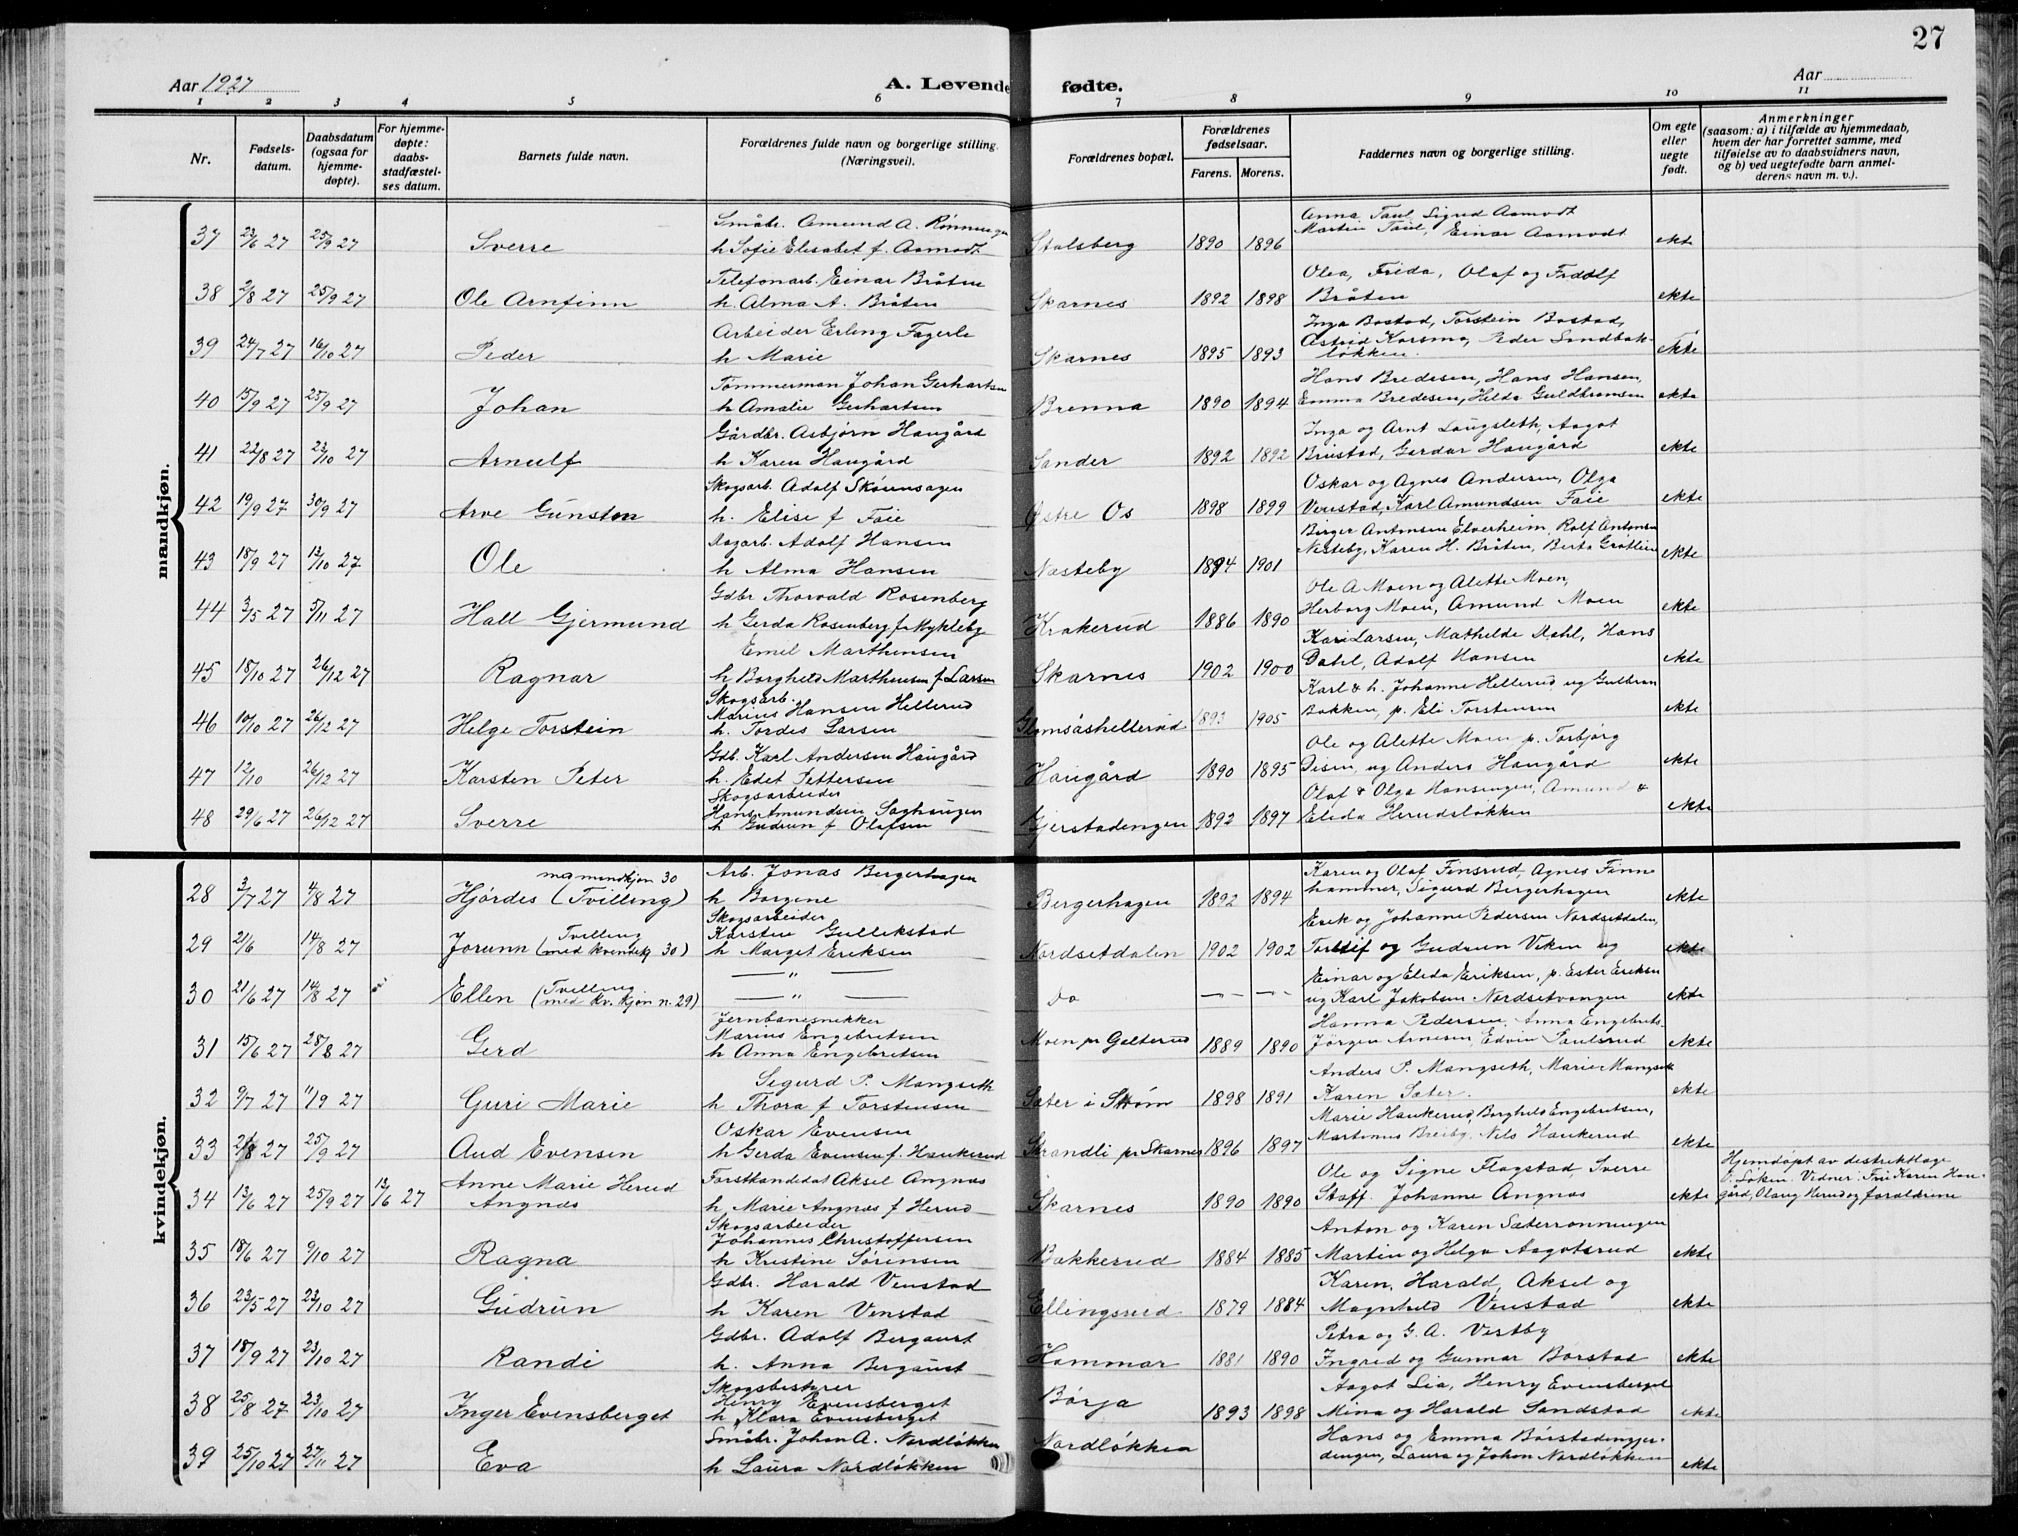 27
Aar 1927
A. Levende fødte.
Aar
1 2 3 4 5 6 7 8 9 10 11
Nr.
Fødsels-
datum.
Daabsdatum
(ogsaa for
hjemme-
døpte).
For hjemme-
døpte:
daabs-
stadfæstel-
ses datum.
Barnets fulde navn.
Forældrenes fulde navn og borgerlige stilling.
(Næringsvei).
Forældrenes bopæl.
Forældrenes
fødselsaar.
Farens. Morens.
Faddernes navn og borgerlige stilling.
Om egte
eller
uegte
født.
Anmerkninger
(saasom: a) i tilfælde av hjemmedaab,
hvem der har forrettet samme, med
tilføielse av to daabsvidners navn,
og b) ved uegtefødte barn anmel-
derens navn m. v.).
mandkjøn.
Småbr. Amund A. Rønningen Anna Taul, Sigrid Aamodt
37 23/6 27 25/9 27 Sverre h Sofie Elisabet f. Aamodt Stalsberg 1890 1896 Martin Taul, Einar Aamodt ekte
Telefonarb. Einar Bråten Olea, Frida, Olaf og Fridolf
38 2/8 27 25/9 27 Ole Arnfinn h. Alma A. Bråten Skarnes 1892 1898 Bråten ekte
Arbeider Erling Fagerli Inga Bostad, Torstein Bostad,
39 24/7 27 16/10 27 Peder h Marie Skarnes 1895 1893 Astrid Korsmo, Peder Sandbak-
løkken. ekte
Tømmerman Johan Gerhartsen Hans Bredesen, Hans Hansen,
40 15/9 27 25/9 27 Johan h Amalie Gerhartsen Brenna 1890 1894 Emma Bredesen, Hilda Guldbransen ekte
Gårdbr. Asbjørn Haugård Inga og Arnt Laugsleth, Aagot
41 22/8 27 23/10 27 Arnulf h Karen Haugård Sander 1892 1892 Brustad, Gerdar Haugård ekte
Skogsarb. Adolf Skørensagen Oskar og Agnes Andersen, Olga
42 19/9 27 30/9 27 Arve Gunston h. Elise f Faie Østre Os 1898 1899 Venstad, Karl Amundsen Faie ekte
Adolf Hansen Birger Antonsen Elverheim, Rolf Antonsen
43 18/9 27 13/10 27 Ole h Alma Hansen Næsteby 1894 1901 Nesteby, Karen H. Bråten, Berta Grøtlien ekte
Gdbr Thorvald Rosenberg Ole A Moen og Alette Moen,
44 3/5 27 5/11 27 Hall Gjermund h Gerda Rosenberg f Mykleby Krakerud 1886 1890 Herborg Moen, Amund Moen ekte
Emel Marthinsen Kari Larsen, Mathilde Dahl, Hans
45 18/10 27 26/12 27 Ragnar h Borghild Marthinsen f Larsen Skarnes 1902 1900 Dahl, Adolf Hansen ekte
Skogsarb.
Marius Hansen Hellerud Karl & h. Johanne Hellerud og Gulbran
46 10/10 27 26/12 27 Helge Torstein h. Tordes Larsen Glomsåshellerud 1893 1905 Bakken, p. Eli Torstensen ekte
Gdb. Karl Andersen Haugård Ole og Alette Moen p. Torbjørg
47 12/10 26/12 27 Karsten Peter h. Edet Pettersen Haugård 1890 1895 Disen, og Anders Haugård ekte
Skogsarbeider
Hans Amundsen Saghaugen Olaf & Olga Hansingen, Amund &
48 29/6 27 26/12 27 Sverre h Gudrun f Olafsen Gjerstadengen 1892 1897 Elida Herudsløkken ekte
kvindekjøn.
m mandkjøn 30 Arb. Jonas Bergerhagen Karen og Olaf Finsrud, Agnes Finne
28 3/7 27 4/8 27 Hjørdes (Tvilling) h Borgene Bergerhagen 1892 1894 hammer, Sigurd Bergerhagen ekte
Skogsarbeider
Tvilling Karsten Gullekstad Erik og Johanne Pedersen Nordsetdalen,
29 21/6 14/8 27 Jorunn (med kvindekj 30) h Marget Eriksen Nordsetdalen 1902 1902 Torleif og Gudrun Viken og ekte
Tvilling Einar og Elida Eriksen, p. Ester Eriksen
30 21/6 27 14/8 27 Ellen (med kv. kjøn n. 29) — " — do — — — og Karl Jakobsen Nordsetvangen ekte
Jernbanesnekker
Marius Engebretsen Hanna Pedersen, Anna Engebrets-
31 15/6 27 28/8 27 Gerd h Anna Engebretsen Moen pr Galterud 1889 1890 Jørgen Arnesen, Edvin Paulsrud ekte
Sigurd P. Mangseth Anders P. Mangseth, Marie Mangseth
32 9/7 27 11/9 27 Guri Marie h Thora f Torstensen Sæter i Strøm 1898 1891 Karen Sæter. ekte
Oskar Evensen Marie Haukerud, Borghild Engebretsen,
33 21/8 27 25/9 27 Aud Evensen h Gerda Evensen f. Haukerud Strandli pr Skarnes 1896 1897 Martonus Breiby, Nils Haukerud ekte
Anne Marie Herud Forstkandidat Aksel Angnæs Ole og Signe Flagstad, Sverre Hjemdøpt av destriktlæge
34 13/6 27 25/9 27 13/6 27 Angnæs h Marie Angnæs f Herud Skarnes 1890 1890 Staff, Johanne Angnæs ekte Søken. Vedner. Fru Karen Hau-
gård, Olaug Herud og foræeldrene
Skogsarbeider
Johannes Christoffersen Anton og Karen Sæterrønningen
35 18/6 27 9/10 27 Ragna h Kristine Sørensen Bakkerud 1884 1885 Martin og Helga Aagotsrud ekte
Gdbr. Harald Venstad Karen, Harald, Aksel og
36 23/5 27 23/10 27 Gudrun h Karen Venstad Ellingsrud 1879 1884 Magnhild Venstad ekte
Gdbr. Adolf Bergaust Petra og G. A. Vestby
37 18/9 27 23/10 27 Randi h. Anna Bergaust Hammar 1881 1890 Ingrid og Gunnar Borstad ekte
Skogsbestyrer
Henry Evensberget Aagot Lia, Henry Evensberget
38 25/8 27 23/10 27 Inger Evensberget h Klara Evensberget Børja 1893 1898 Mina og Harald Sandstad ekte
Småbr. Johan A. Nordløkken Hans og Emma Børstadinger-
39 25/10 27 27/11 27 Eva h Laura Nordløkken Nordløkken dengen, Laura og Johan Nordløkken ekte